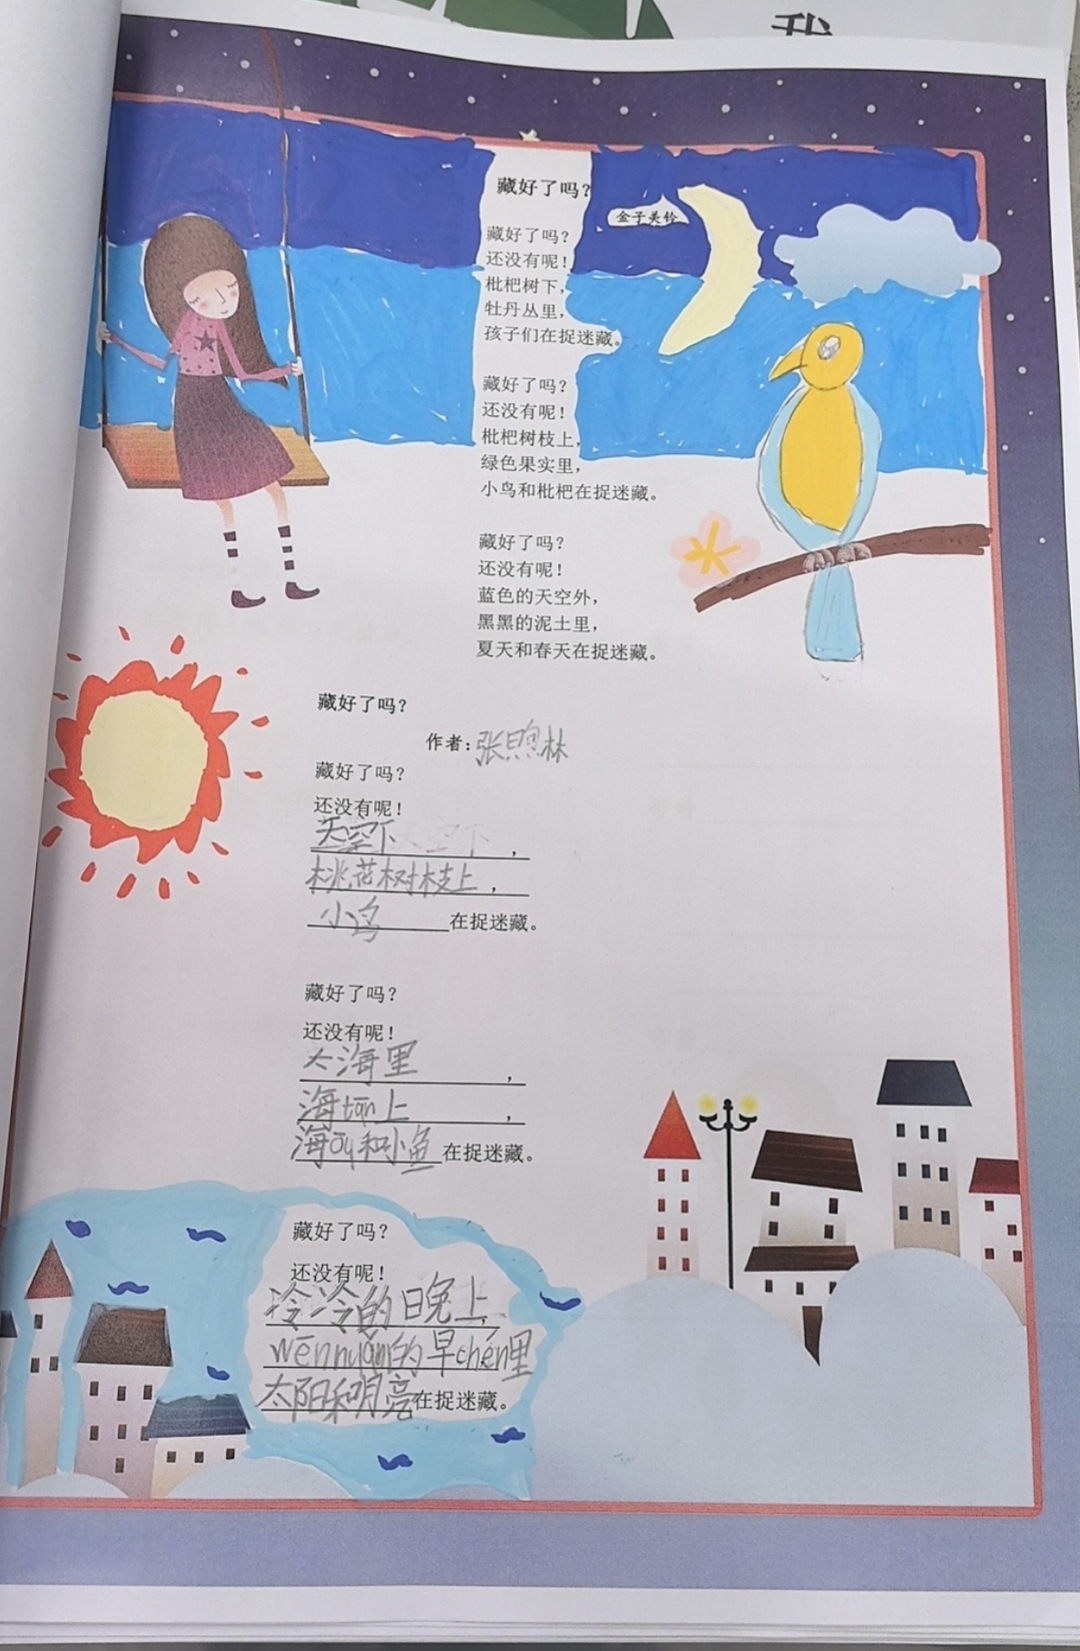 藏好了吗?
金子美铃
藏好了吗?
还没有呢!
枇杷树下,
牡丹丛里,
孩子们在捉迷藏。
藏好了吗?
还没有呢!
枇杷树枝上,
绿色果实里,
小鸟和枇杷在捉迷藏。
藏好了吗?
还没有呢!
蓝色的天空外,
黑黑的泥土里,
夏天和春天在捉迷藏。
藏好了吗?
作者:张煦林
藏好了吗?
还没有呢!
天空下,
桃花树枝上,
小鸟在捉迷藏。
藏好了吗?
还没有呢!
大海里,
海tān上,
海ōu和小鱼在捉迷藏。
藏好了吗?
还没有呢!
冷冷的晚上,
wēnnuǎn的早chén里
太阳和月亮在捉迷藏。